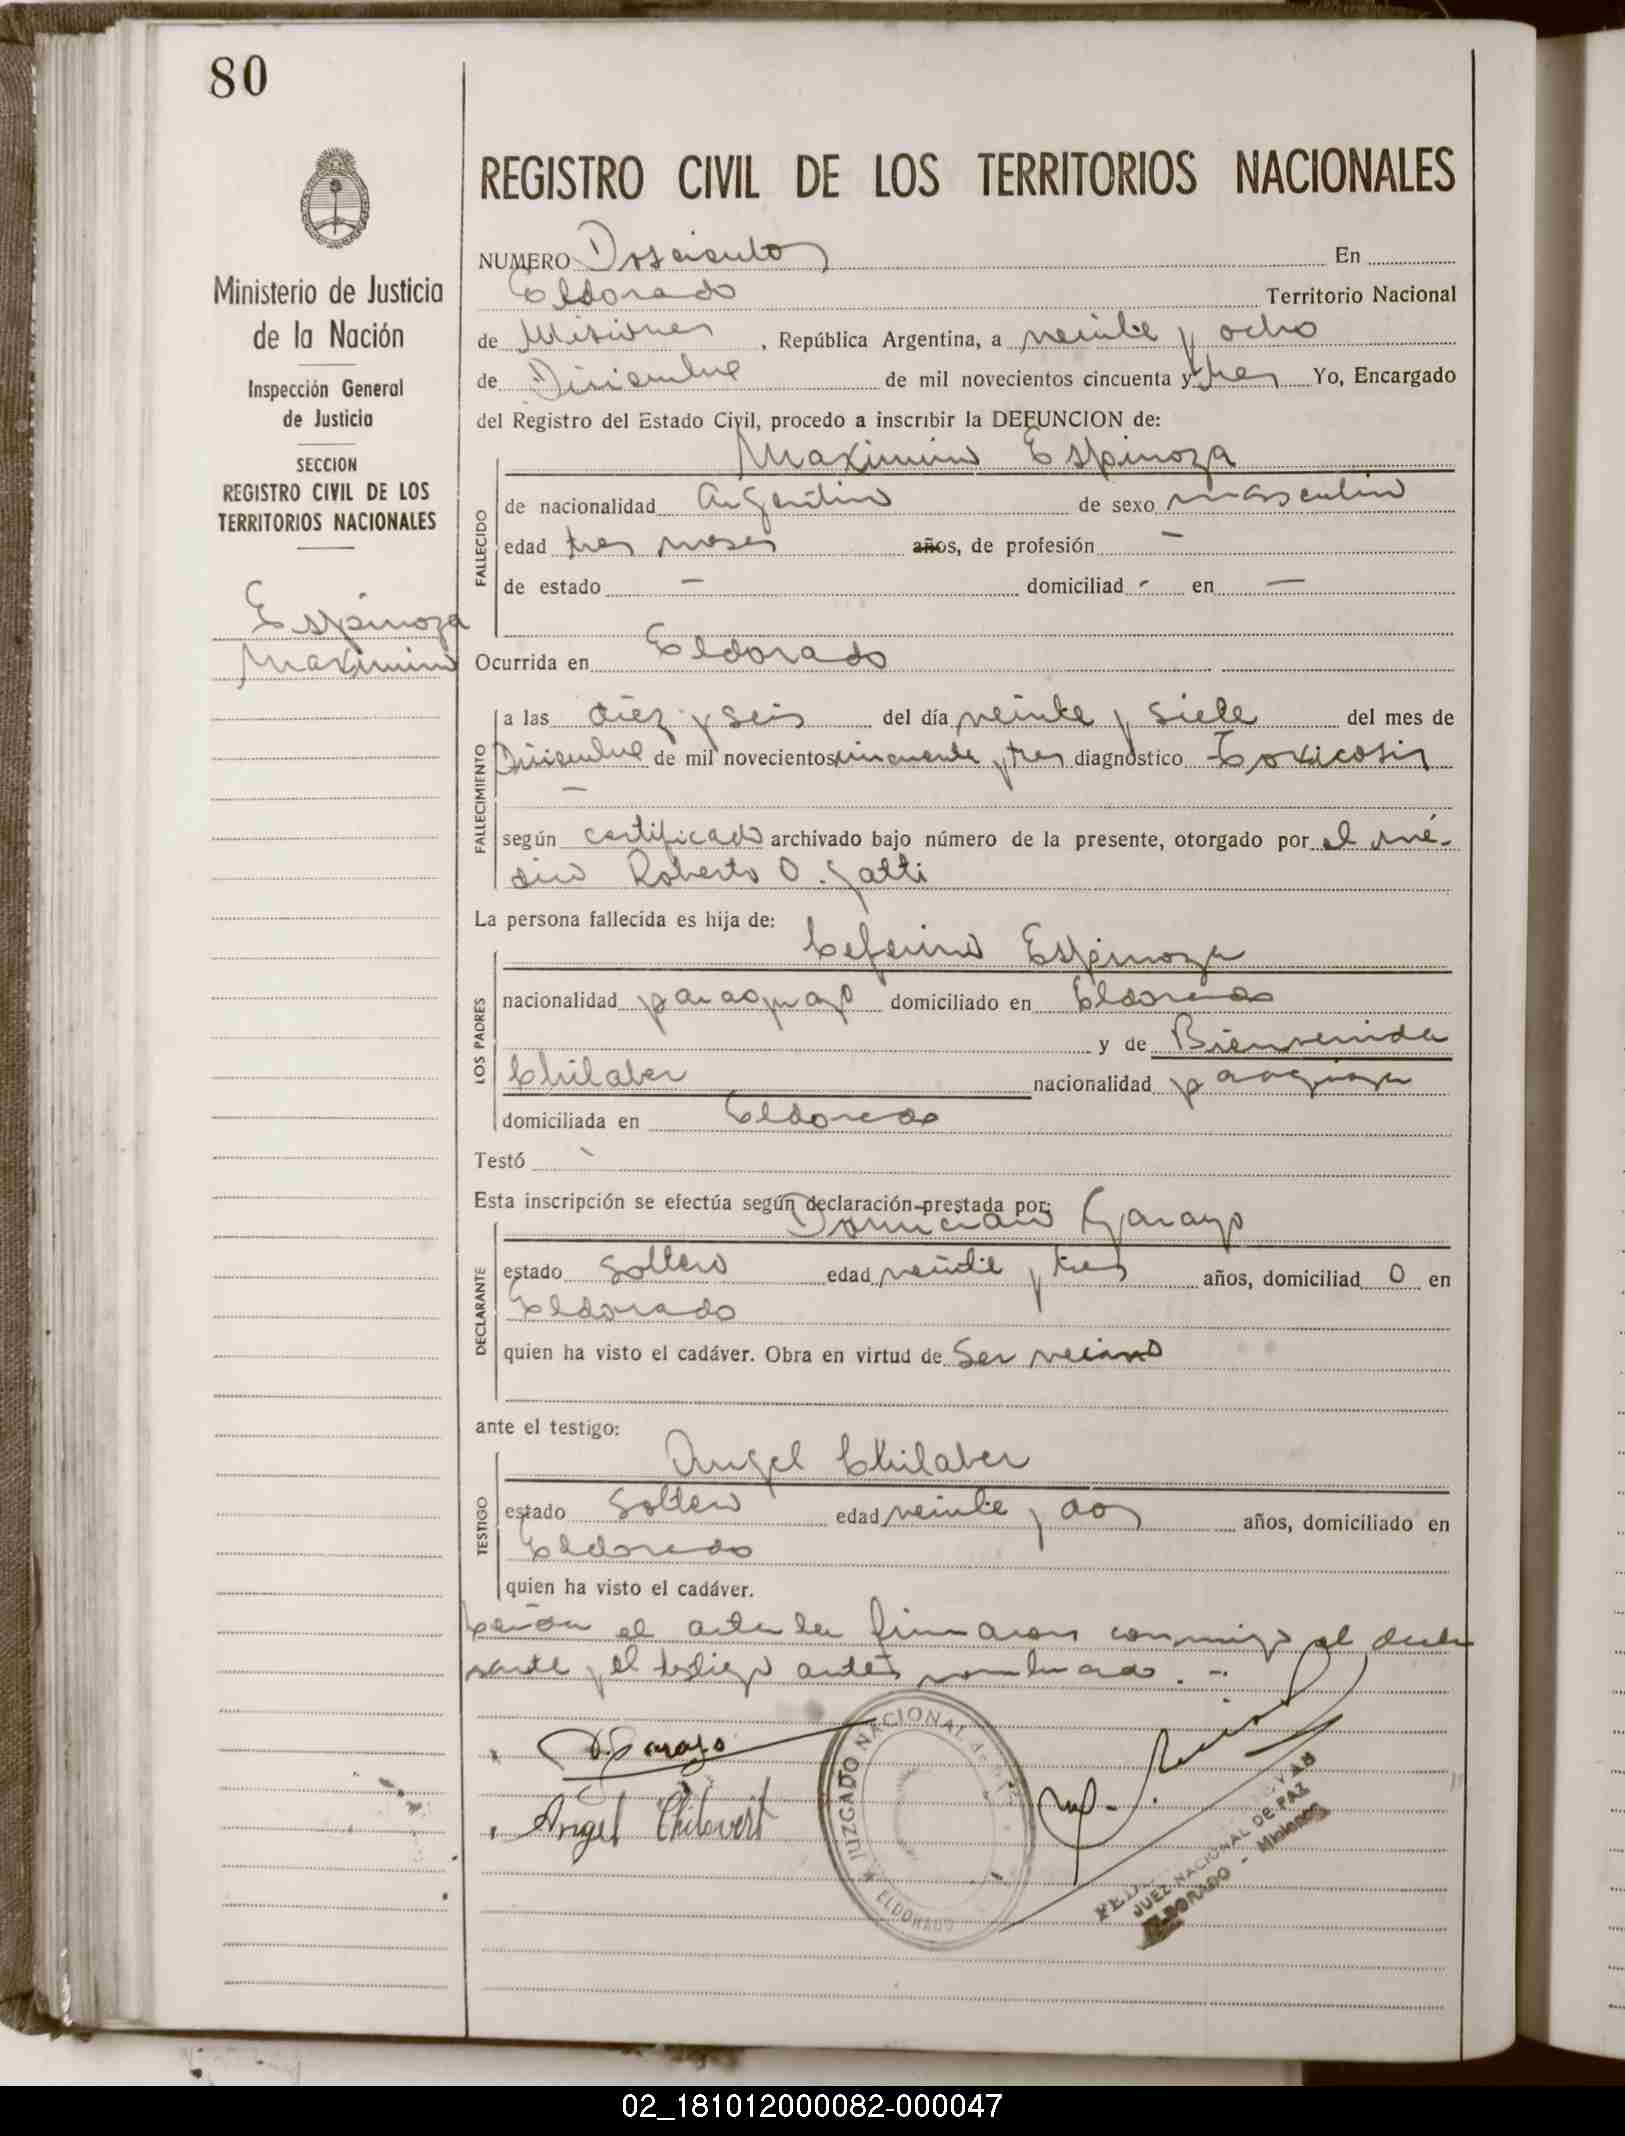 80
Ministerio de Justicia
de la Nación
Inspección General
de Justicia
SECCION
REGISTRO CIVIL DE LOS
TERRITORIOS NACIONALES
Espinoza
Maximino
REGISTRO CIVIL DE LOS TERRITORIOS NACIONALES
NUMERO Doscientos En
Eldorado Territorio Nacional
de Misiones, República Argentina, a veinte y ocho
de Diciembre de mil novecientos cincuenta y tres Yo, Encargado
del Registro del Estado Civil, procedo a inscribir la DEFUNCION de:
Maximino Espinoza
FALLECIDO
de nacionalidad Argentino de sexo masculino
edad tres meses años, de profesión —
de estado — domiciliad - en —
Ocurrida en Eldorado
FALLECIMIENTO
a las diez y seis del día veinte y siete del mes de
Diciembre de mil novecientos cincuenta y tres diagnóstico Toxicosis
—
según certificado archivado bajo número de la presente, otorgado por el mé-
dico Roberto O. Gatti
La persona fallecida es hija de:
Ceferino Espinoza
LOS PADRES
nacionalidad paraguayo domiciliado en Eldorado
y de Bienvenida
Chilaber nacionalidad paraguaya
domiciliada en Eldorado
Testó
Esta inscripción se efectúa según declaración prestada por:
Domiciano Garayo
DECLARANTE
estado soltero edad veinte y tres años, domiciliad o en
Eldorado
quien ha visto el cadáver. Obra en virtud de ser vecino
ante el testigo:
Angel Chilaber
TESTIGO
estado soltero edad veinte y dos años, domiciliado en
Eldorado
quien ha visto el cadáver.
el acta la firmaron conmigo el decla
rante y el testigo antes nombrado.-
D. Garayo
Angel Chilavert
JUZGADO NACIONAL de
ELDORADO
JUEZ NACIONAL DE PAZ
ELDORADO - Misiones
02_181012000082-000047